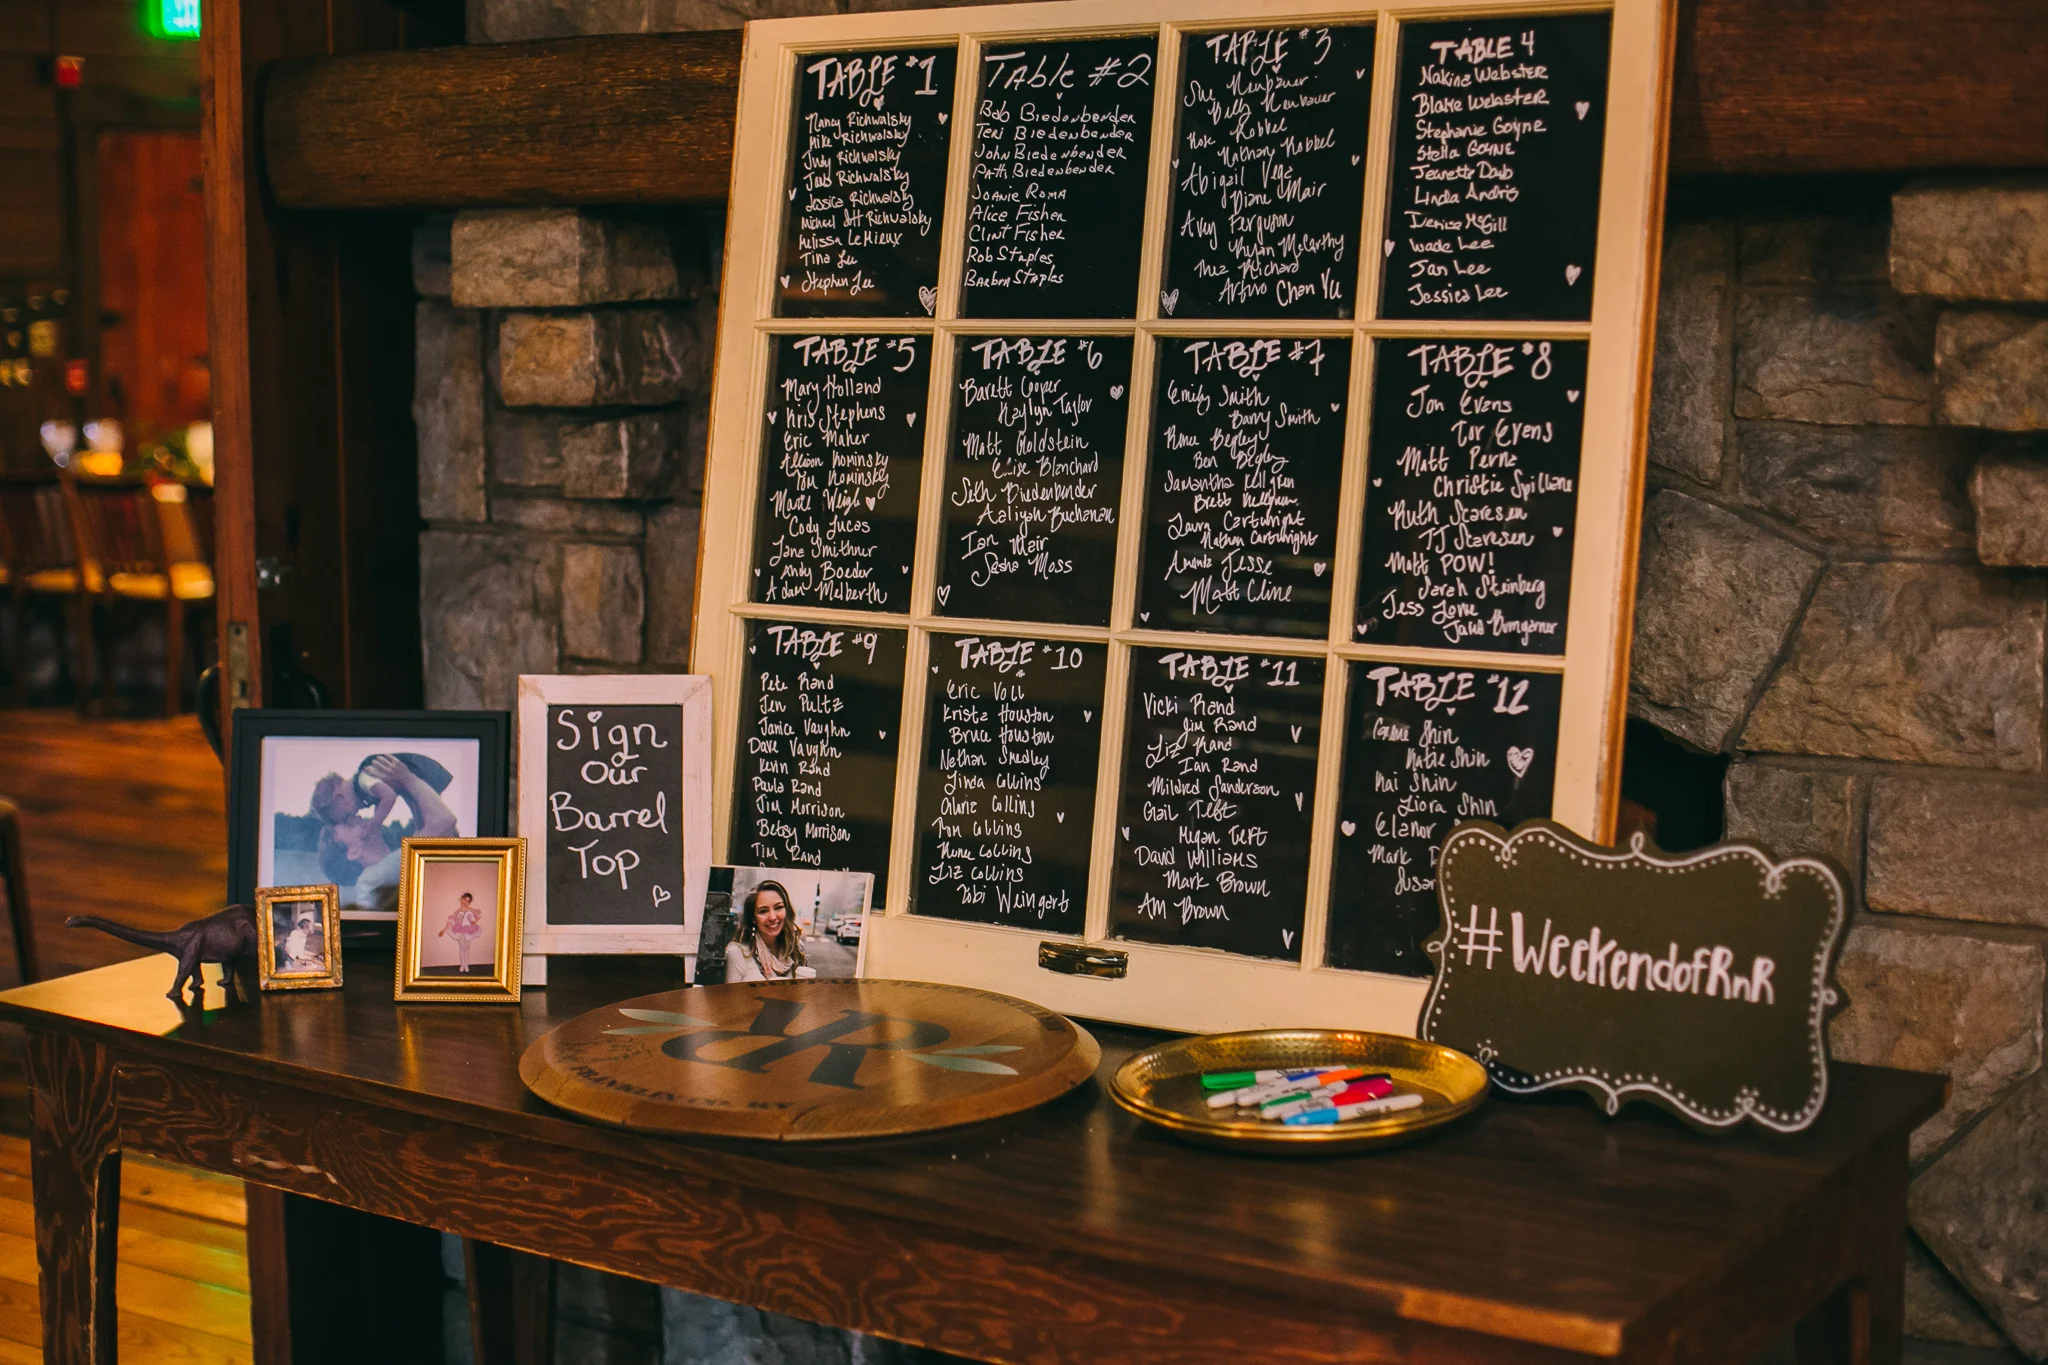 TABLE #1
Nancy Richwalsky
Mike Richwalsky
Judy Richwalsky
Richwalsky
Jessica Richwalsky
Richwalsky
Melissa LeMieux
Tina Lee
Stephen Lee
Table #2
Bob Biedenbender
Teri Biedenbender
John Biedenbender
Patti Biedenbender
Joanie Roma
Alice Fisher
Clint Fisher
Rob Staples
Barbra Staples
TABLE #3
Sue Neubauer
Billy Neubauer
Kobbel
Nathan Kobbel
Abigail Vega
Diane Mair
Avery Ferguson
Ryan McCarthy
Thea Richard
Arturo Chan Yu
TABLE 4
Nakina Webster
Blake Webster
Stephanie Goyne
Stella Goyne
Jeanette Daub
Linda Andris
Denise McGill
Wade Lee
Jan Lee
Jessica Lee
TABLE #5
Mary Holland
Kris Stephens
Eric Maher
Allison Kominsky
Tom Kominsky
Marie Weigle
Cody Lucas
Jana Smithner
Andy Boeder
Adam Melberth
TABLE #6
Barett Cooper
Kaylyn Taylor
Matt Goldstein
Elise Blanchard
Seth Biedenbender
Aaliyah Buchanan
Ian Mair
Sasha Moss
TABLE #7
Emily Smith
Barry Smith
Begley
Ben Begley
Samantha Kellgren
Brett Kellgren
Laura Cartwright
Nathan Cartwright
Jesse
Matt Cline
TABLE #8
Jon Evans
Tor Evens
Matt Perna
Christie Spillane
Ruth Staresen
TJ Staresen
Matt POW!
Sarah Steinberg
Jess
Jakub Bumgarner
TABLE #9
Pete Rand
Jen Pultz
Janice Vaughn
Dave Vaughn
Kevin Rand
Paula Rand
Jim Morrison
Betsy Morrison
Tim Rand
TABLE #10
Eric Voll
Krista Houston
Bruce Houston
Nathan Smedley
Linda Collins
Collins
Tom Collins
Renee Collins
Liz Collins
Weingart
TABLE #11
Vicki Rand
Jim Rand
Liz Rand
Ian Rand
Mildred Sanderson
Gail Teft
Megan Teft
David Williams
Mark Brown
AM Brown
TABLE #12
Shin
Katie Shin
Kai Shin
Liora Shin
Elanor
Mark
Susan
Sign
Our
Barrel
Top
R&R
FRANKLIN CO. KY
#WeekendofRnR